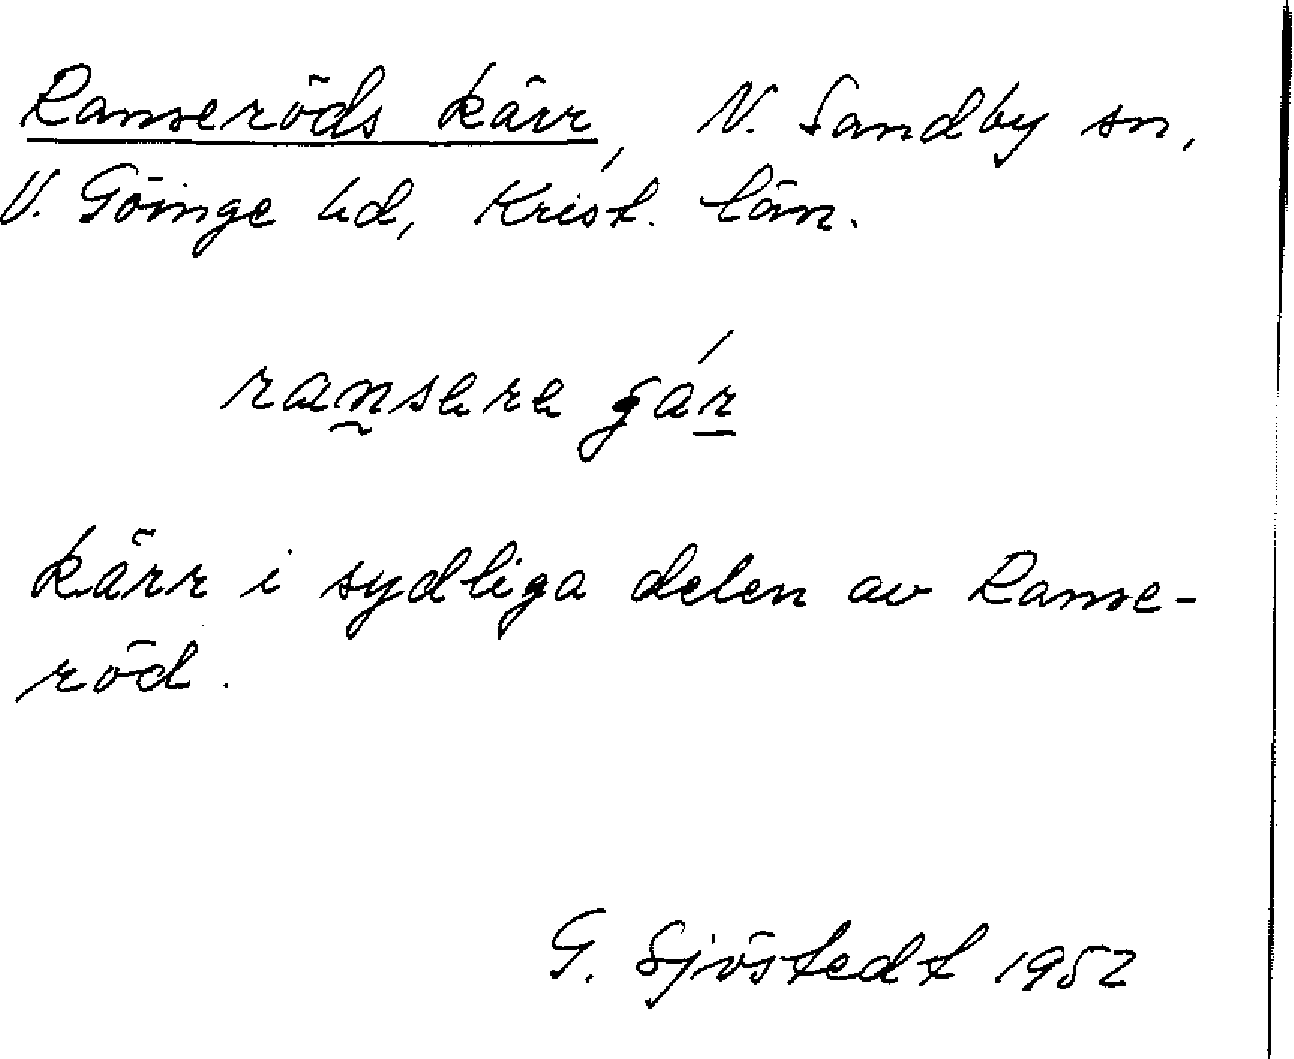 Ranseröds kärr, N. Sandby sn,
V. Göinge hd, Krist. län.
kärr i sydliga delen av Ranse-
röd.
G. Sjöstedt 1952